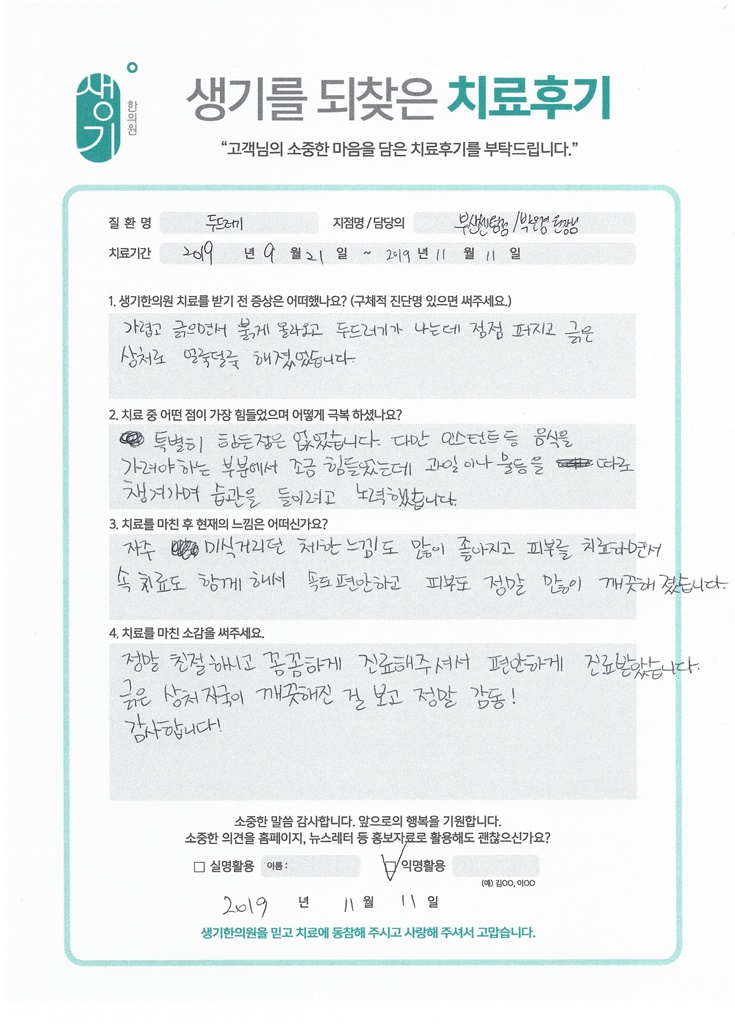 생기 한의원
생기를 되찾은 치료후기
“고객님의 소중한 마음을 담은 치료후기를 부탁드립니다.”
질 환 명 두드러기 지점명 / 담당의 부산센텀점 / 박은경 원장님
치료기간 2019 년 9 월 21 일 ~ 2019 년 11 월 11 일
1. 생기한의원 치료를 받기 전 증상은 어떠했나요? (구체적 진단명 있으면 써주세요.)
가렵고 긁으면서 붉게 올라오고 두드러기가 나는데 점점 퍼지고 긁은
상처로 얼룩덜룩 해졌었습니다.
2. 치료 중 어떤 점이 가장 힘들었으며 어떻게 극복 하셨나요?
특별히 힘든점은 없었습니다. 다만 인스턴트 등 음식을
가려야 하는 부분에서 조금 힘들었는데 과일이나 물등을 따로
챙겨가며 습관을 들이려고 노력했습니다.
3. 치료를 마친 후 현재의 느낌은 어떠신가요?
자주 미식거리던 체한느낌도 많이 좋아지고 피부를 치료하면서
속 치료도 함께 해서 속도 편안하고 피부도 정말 많이 깨끗해 졌습니다.
4. 치료를 마친 소감을 써주세요.
정말 친절하시고 꼼꼼하게 진료해주셔서 편안하게 진료받았습니다.
긁은 상처 자국이 깨끗해진 걸 보고 정말 감동!
감사합니다!
소중한 말씀 감사합니다. 앞으로의 행복을 기원합니다.
소중한 의견을 홈페이지, 뉴스레터 등 홍보자료로 활용해도 괜찮으신가요?
□ 실명활용 이름 : ☑ 익명활용
(예) 김OO, 이OO
2019 년 11 월 11 일
생기한의원을 믿고 치료에 동참해 주시고 사랑해 주셔서 고맙습니다.